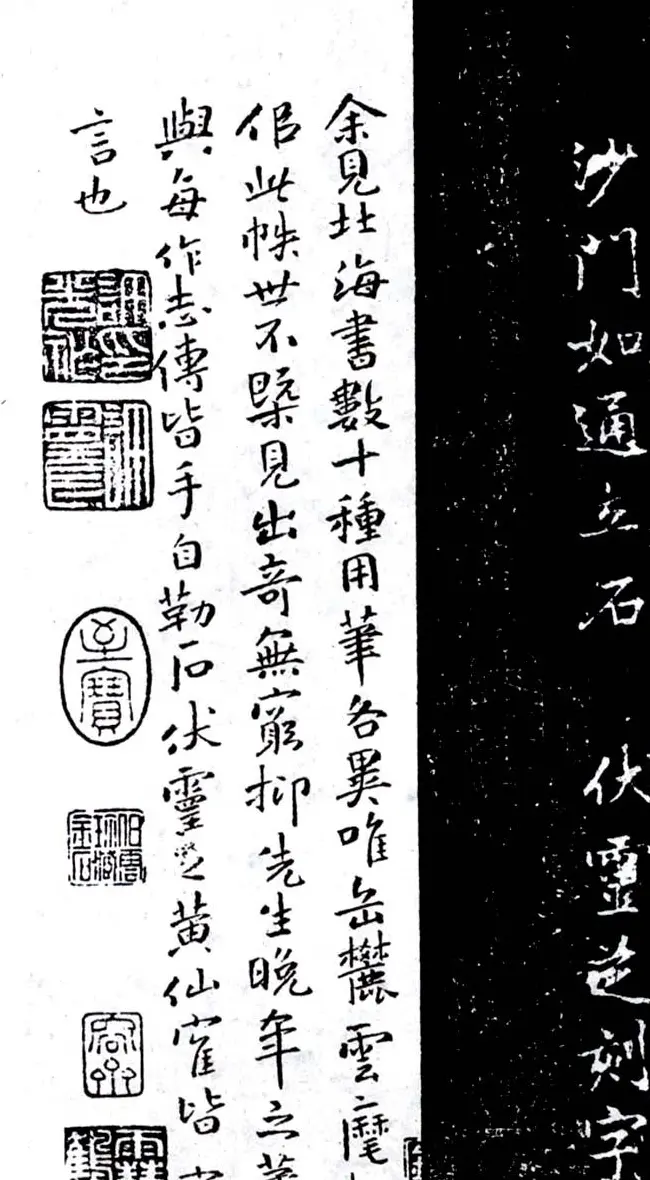 沙門如通立石 伏靈芝刻字
余見北海書數十種用筆各異唯岳麓雲麾
侣此帙世不槩見出奇無窮抑先生晚年之筆
與每作志傳皆手自勒石伏靈芝黄仙崔皆
言也
至寶